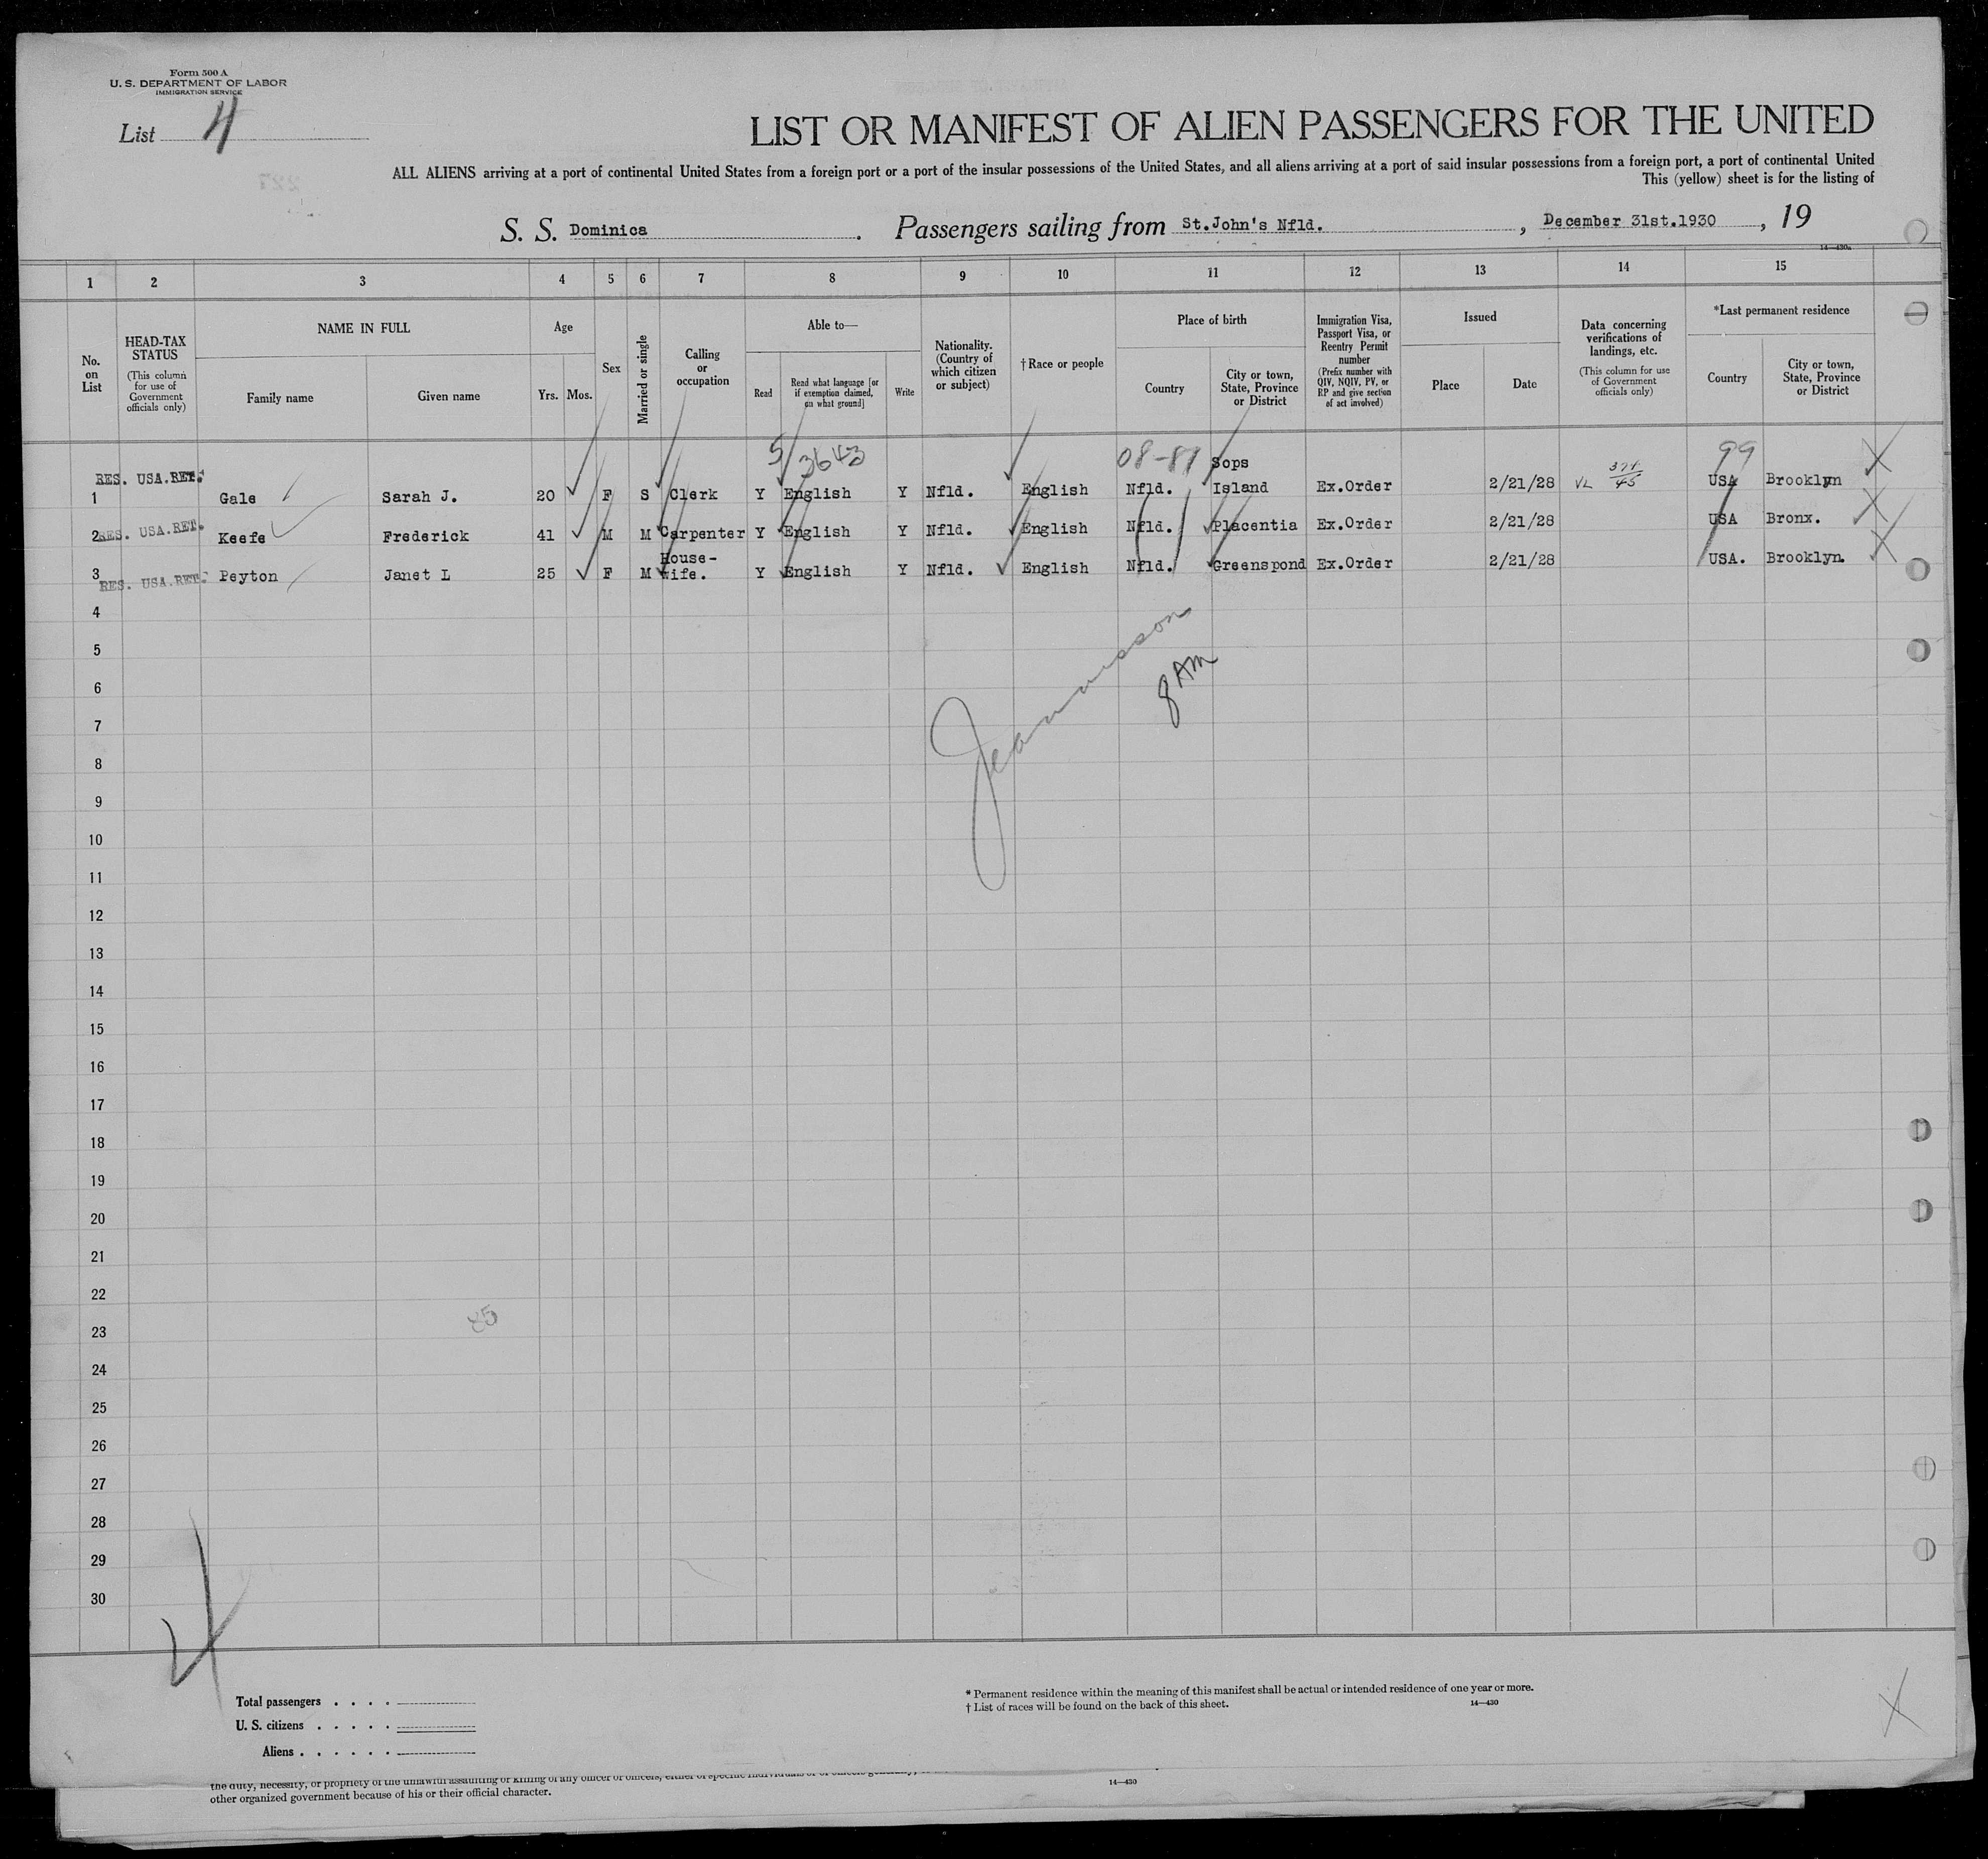 Form 500 A
U. S. DEPARTMENT OF LABOR
IMMIGRATION SERVICE
List 4
LIST OR MANIFEST OF ALIEN PASSENGERS FOR THE UNITED
ALL ALIENS arriving at a port of continental United States from a foreign port or a port of the insular possessions of the United States, and all aliens arriving at a port of said insular possessions from a foreign port, a port of continental United
This (yellow) sheet is for the listing of
S. S. Dominica . Passengers sailing from St.John's Nfld. , December 31st.1930 , 19
14—430a
1 2 3 4 5 6 7 8 9 10 11 12 13 14 15
No. on List
HEAD-TAX STATUS
(This column for use of Government officials only)
NAME IN FULL
Family name Given name
Age
Yrs. Mos.
Sex
Married or single
Calling or occupation
Able to—
Read
Read what language [or if exemption claimed, on what ground]
Write
Nationality. (Country of which citizen or subject)
† Race or people
Place of birth
Country
City or town, State, Province or District
Immigration Visa, Passport Visa, or Reentry Permit number
(Prefix number with QIV, NQIV, PV, or RP and give section of act involved)
Issued
Place Date
Data concerning verifications of landings, etc.
(This column for use of Government officials only)
*Last permanent residence
Country
City or town, State, Province or District
5/3643 08-81 99
1 RES. USA.RET. Gale Sarah J. 20 F S Clerk Y English Y Nfld. English Nfld. Sops Island Ex.Order 2/21/28 VL USA Brooklyn
2 RES. USA.RET. Keefe Frederick 41 M M Carpenter Y English Y Nfld. English Nfld. Placentia Ex.Order 2/21/28 USA Bronx.
3 RES. USA.RET. Peyton Janet L 25 F M House-wife. Y English Y Nfld. English Nfld. Greenspond Ex.Order 2/21/28 USA. Brooklyn.
4
5
6
8 AM
7
8
9
10
11
12
13
14
15
16
17
18
19
20
21
22
23
24
25
26
27
28
29
30
Total passengers . . . .
U. S. citizens . . . . .
Aliens . . . . . .
* Permanent residence within the meaning of this manifest shall be actual or intended residence of one year or more.
† List of races will be found on the back of this sheet.
14—430
the duty, necessity, or propriety of the unlawful assaulting or killing of any officer or officers, either of specific individuals or of officers generally,
14—430
other organized government because of his or their official character.